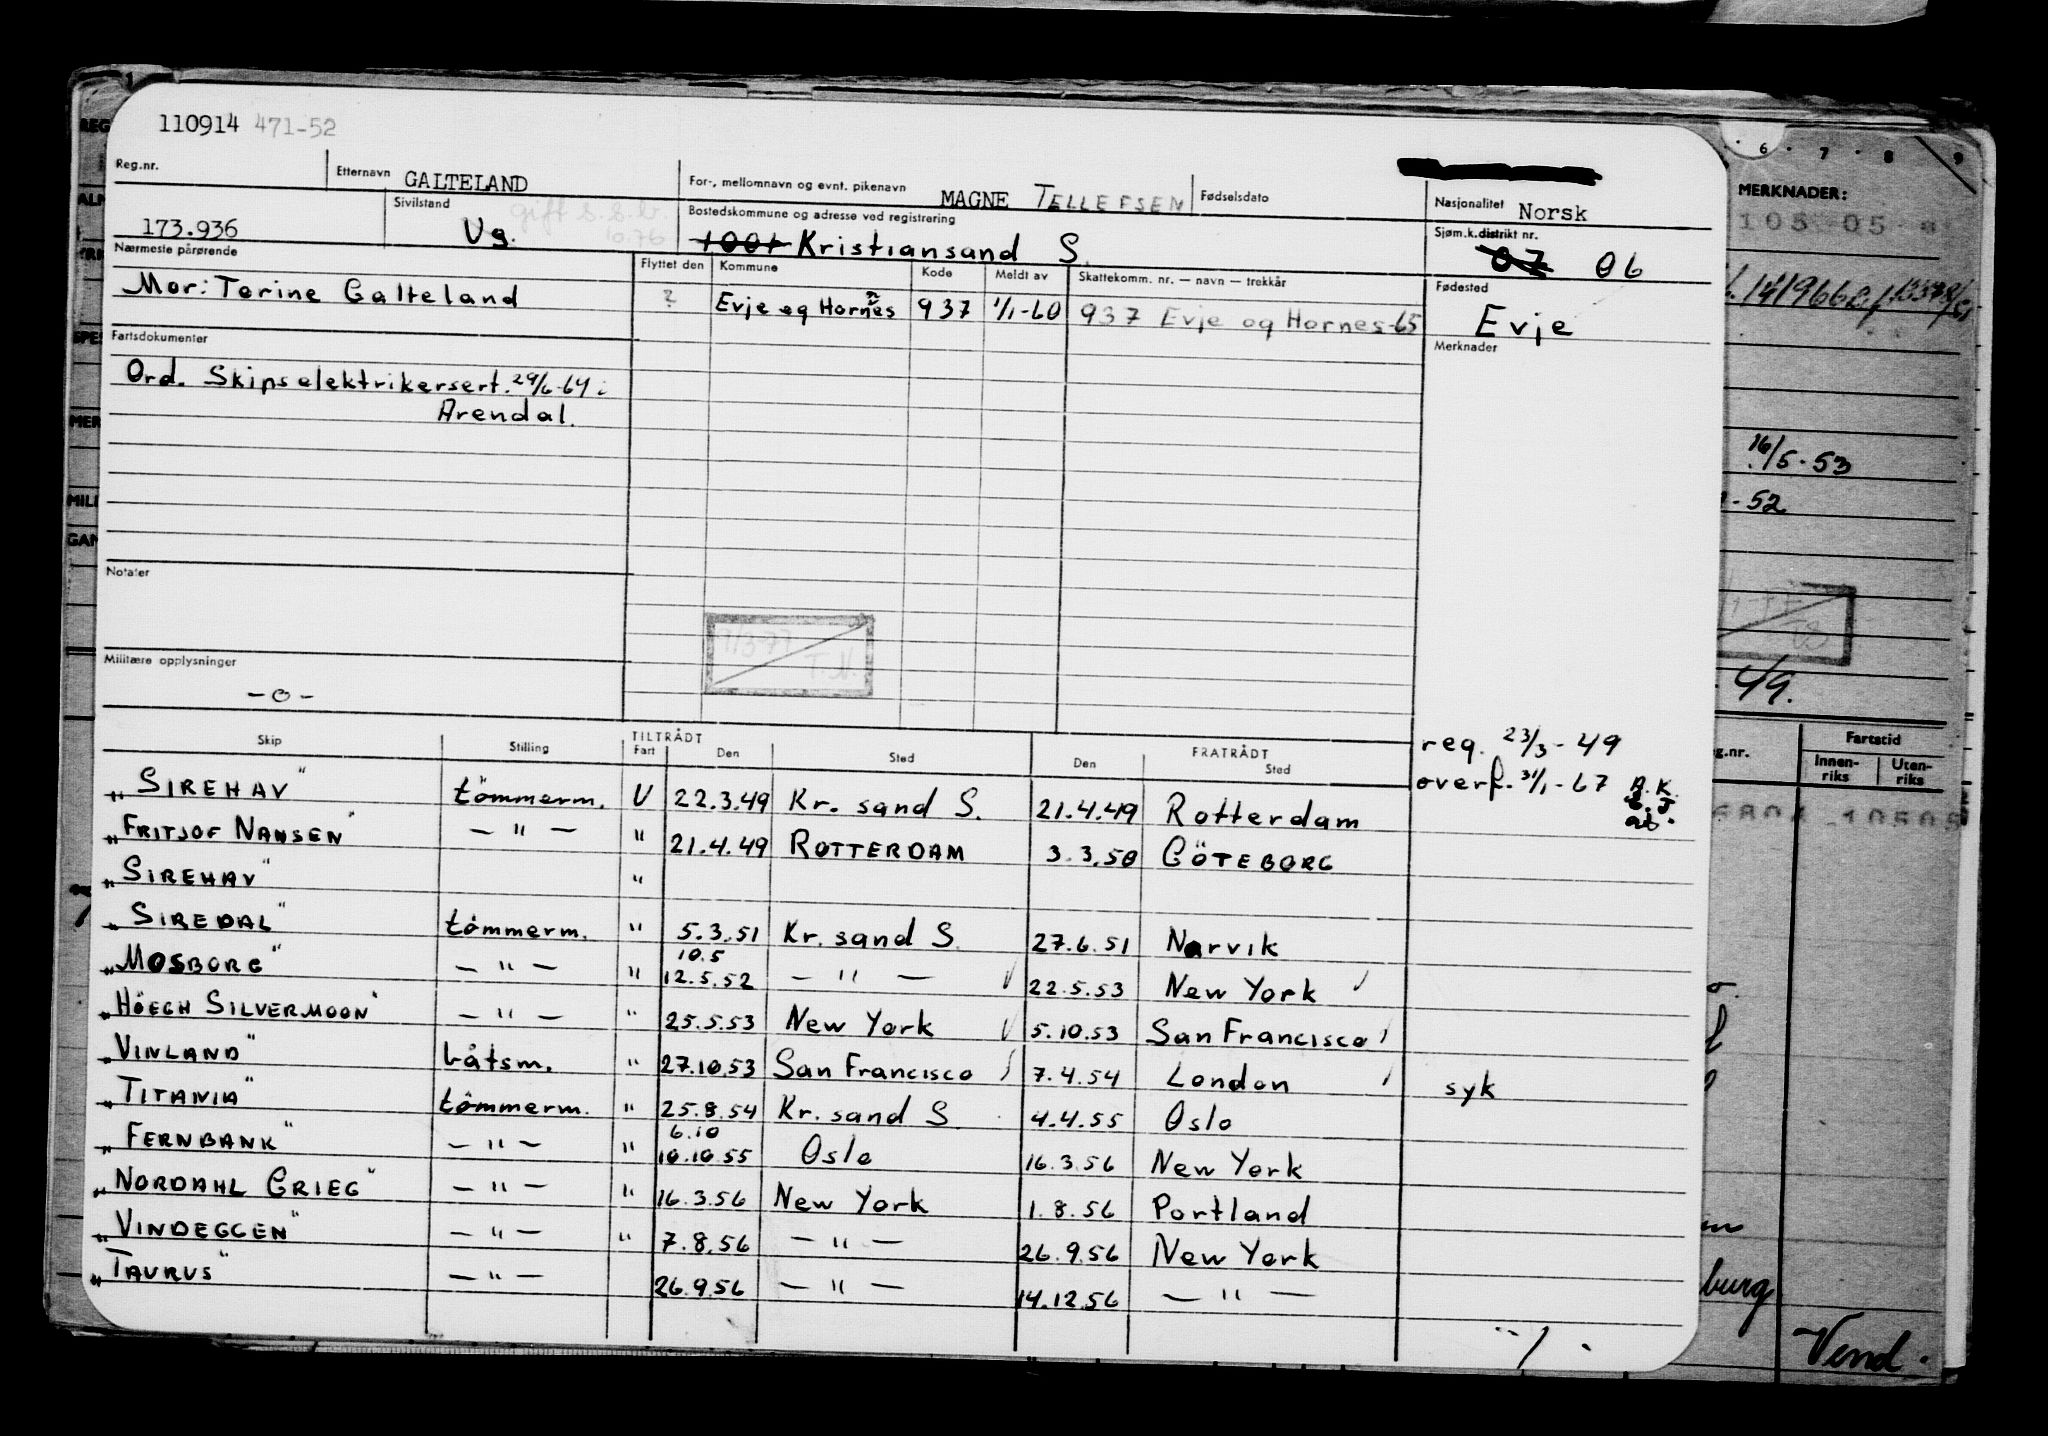 110914 471-52
Reg.nr. Etternavn GALTELAND For-, mellomnavn og evnt. pikenavn MAGNE TELLEFSEN Fødselsdato Nasjonalitet Norsk
173.936 Sivilstand Ug. gift s.s.b. 10.76 Bostedskommune og adresse ved registrering 1001 Kristiansand S. Sjøm.k.distrikt nr. 07 06
Nærmeste pårørende Flyttet den Kommune Kode Meldt av Skattekomm. nr. — navn — trekkår Fødested
Mor: Torine Galteland ? Evje og Hornnes 937 1/1-60 937 Evje og Hornes-65 Evje
Fartsdokumenter Merknader
Ord. Skipselektrikersert. 29/6-64 i
Arendal.
Notater
Militære opplysninger
-o-
T.N.
Skip Stilling TILTRÅDT Fart Den Sted FRATRÅDT Den Sted
reg. 23/3-49
overf. 31/1-67
"SIREHAV" tömmerm. U 22.3.49 Kr. sand S. 21.4.49 Rotterdam
"FRITJOF NANSEN" — " — " 21.4.49 ROTTERDAM 3.3.50 GÖTEBORG
"SIREHAV" "
"SIREDAL" tömmerm. " 5.3.51 Kr. sand S. 27.6.51 Narvik
10.5
"MOSBORG" — " — " 12.5.52 — " — 22.5.53 New York
"HÖEGH SILVERMOON" — " — " 25.5.53 New York 5.10.53 San Francisco
"VINLAND" båtsm. " 27.10.53 San Francisco 7.4.54 London syk
"TITANIA" tömmerm. " 25.8.54 Kr. sand S. 4.4.55 Oslo
6.10
"FERNBANK" — " — " 10.10.55 Oslo 16.3.56 New York
"NORDAHL GRIEG" — " — " 16.3.56 New York 1.8.56 Portland
"VINDEGGEN" — " — " 7.8.56 — " — 26.9.56 New York
"TAURUS" — " — 26.9.56 — " — 14.12.56 — " —
6 7 8 9
MERKNADER:
16/5-53
-52
49.
Fartstid
Innen-riks Uten-riks
burg
Vend.